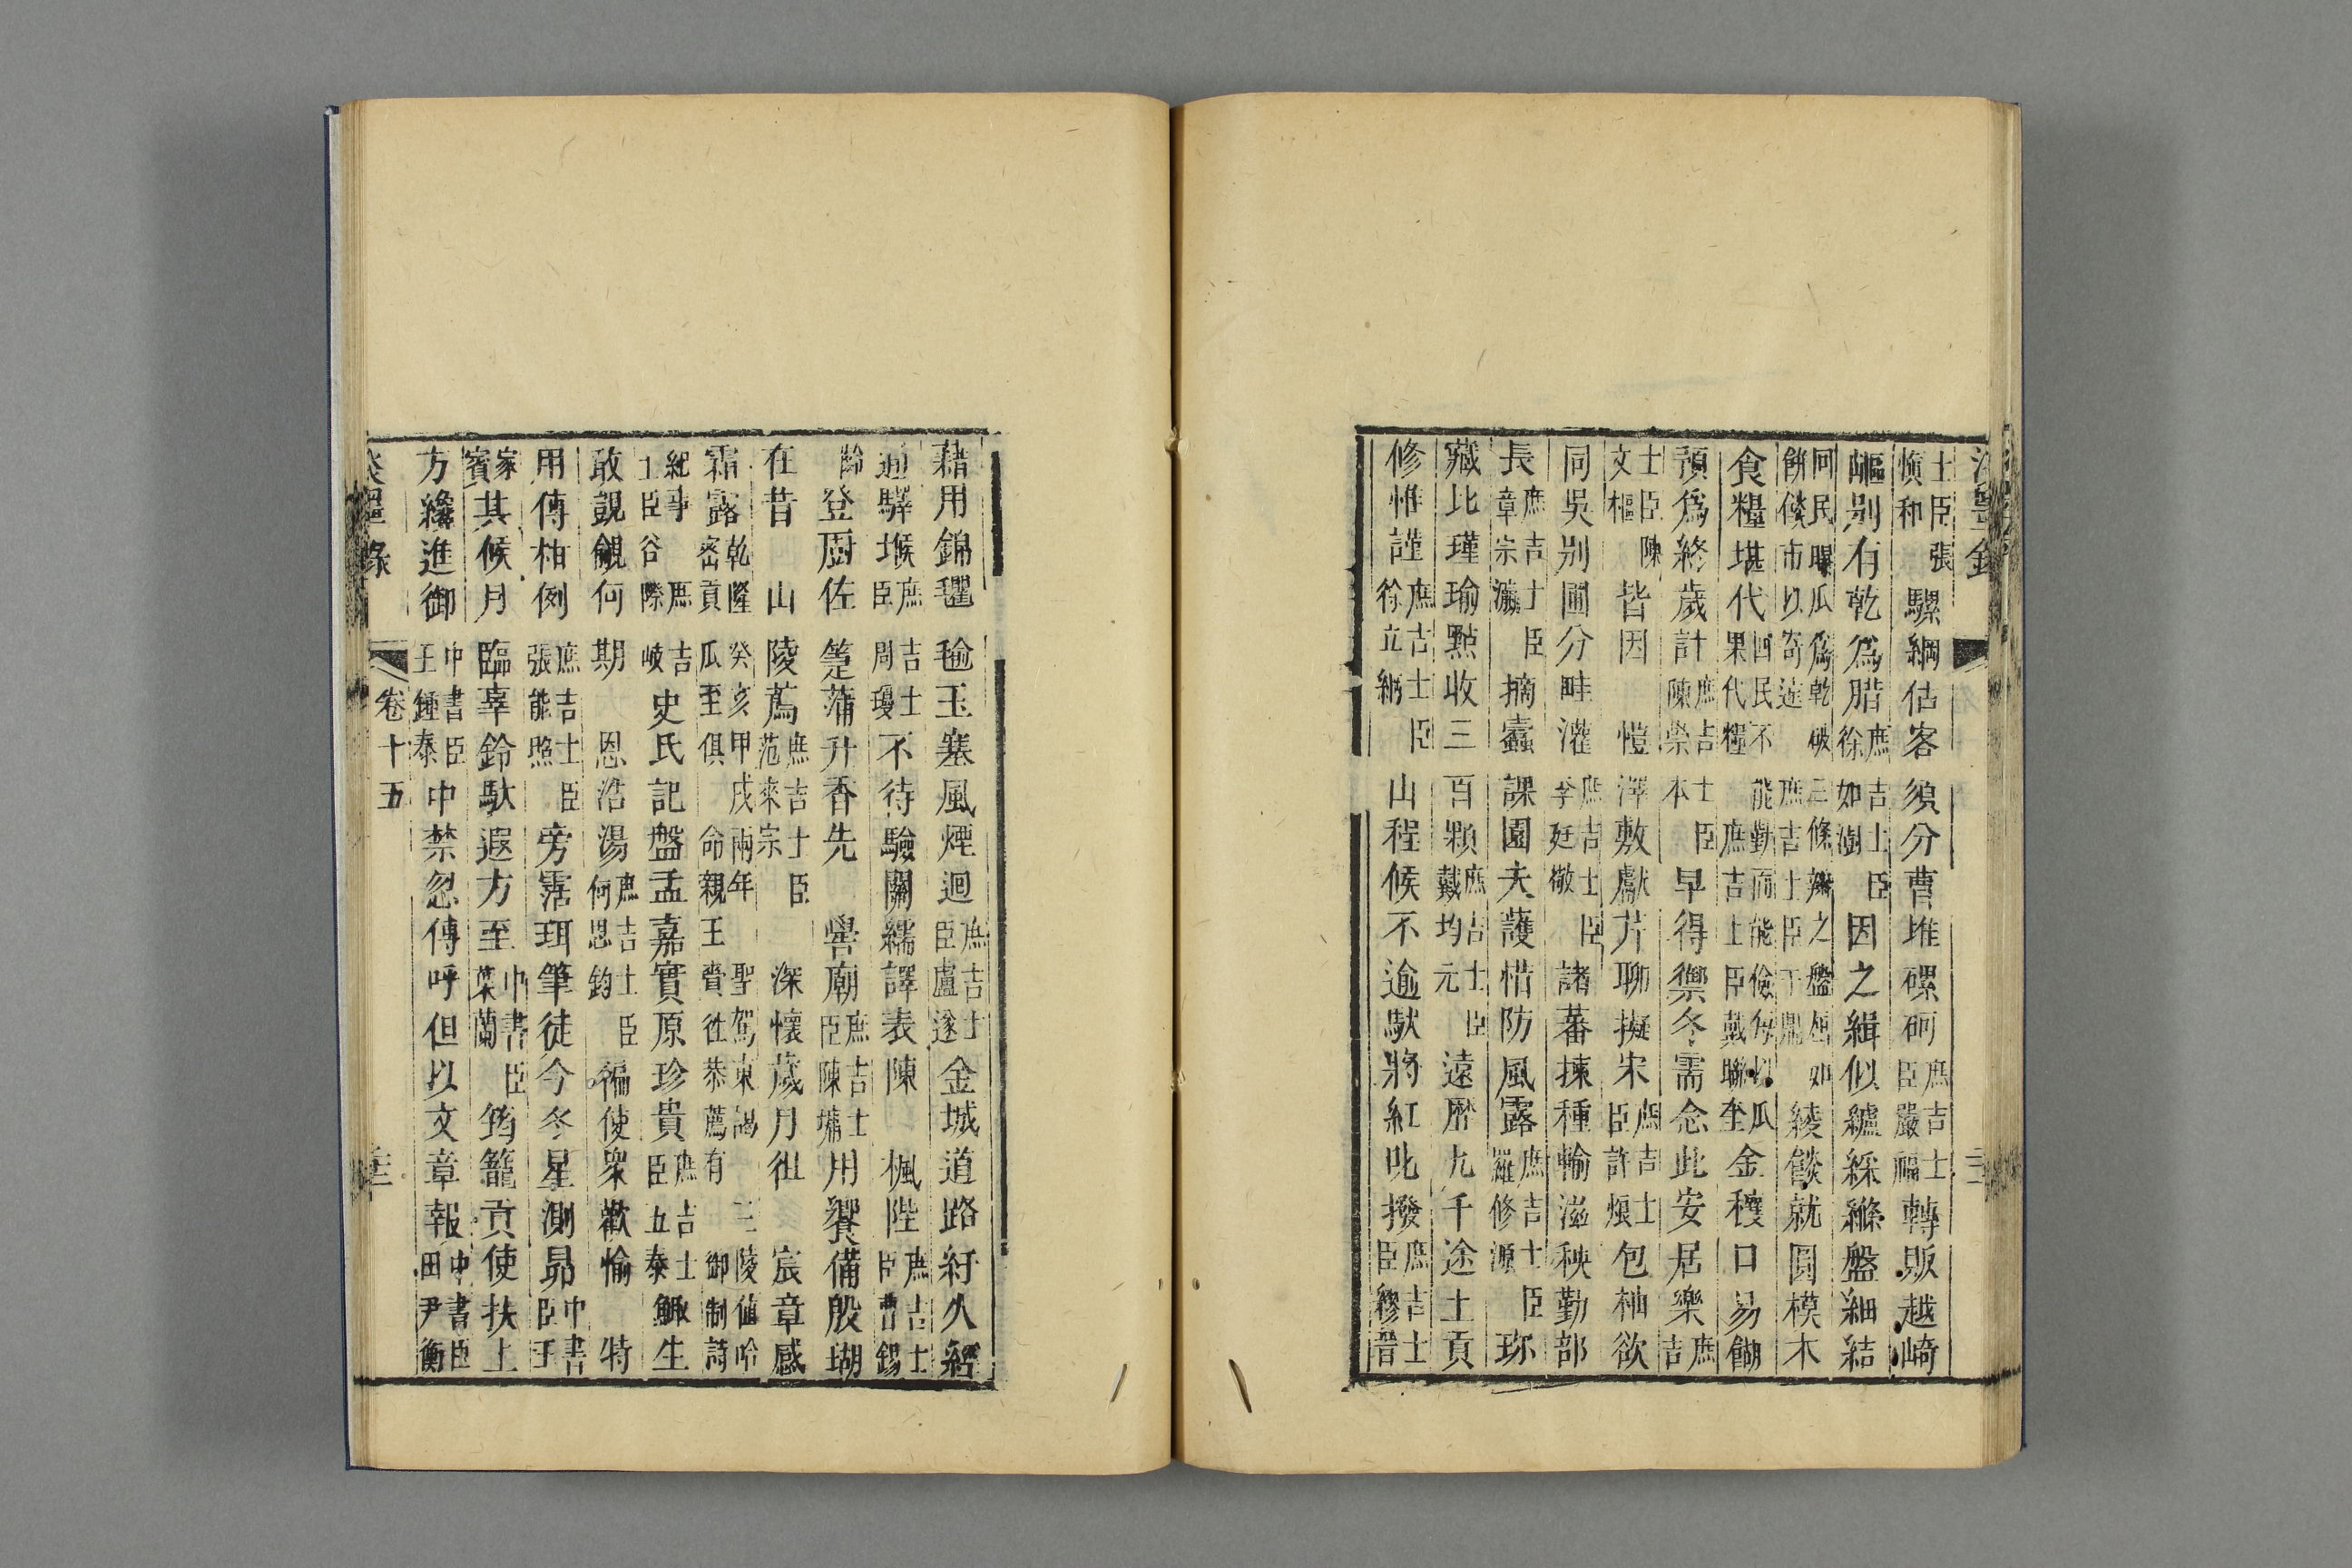 士臣張愼和騾綱估客須分曹堆磥砢庶吉士臣嚴福轉販越崎
嶇别有乾爲腊庶吉士臣徐如澍因之緝似纑綵縧盤細結
回民曝瓜爲乾破三條辮之盤屈如餅餤市以寄遠庶吉士臣于鼎綾餤就圓模木
食糧堪代回民不能勤而能儉每以瓜果代糧庶吉士臣戴聯奎金穰口易餬
預爲終歲計庶吉士臣陳崇本早得禦冬需念此安居樂庶吉
士臣陳文樞皆因愷澤敷獻芹聊擬宋庶吉士臣許烺包柚欲
同吳别圃分畦灌庶吉士臣李廷敬諸蕃揀種輸滋秧勤部
長庶吉士臣章宗瀛摘蠧課園夫護惜防風露庶吉士臣羅修源珎
藏比瑾瑜㸃收三百顆庶吉士臣戴均元遠曆九千途土貢
修惟謹庶吉士臣徐立綱山程候不逾馱將紅叱撥庶吉士臣繆晉
藉用錦氍毹玉塞風煙迴庶吉士臣盧遂金城道路紆久經
通驛堠庶吉士臣周瓊不待驗關繻譯表陳楓陛庶吉士臣曹錫
齡登厨佐箑蒲升香先譽廟庶吉士臣陳墉用饗備殷瑚
在昔山陵薦庶吉士臣范來宗深懷歲月徂宸章感
霜露乾隆癸亥甲戌兩年聖駕東謁三陵値哈密貢瓜至俱命親王賫徃恭薦有御制詩
紀事庶吉士臣谷際岐史氏記盤盂嘉實原珍貴庶吉士臣五泰鯫生
敢覬覦何期恩浩湯庶吉士臣何思鈞徧使衆歡愉特
用傳柏例庶吉士臣張能照旁霑珥筆徒今冬星測昴中書臣王
家賓其候月臨辜鈴馱遐方至中書臣葉蘭筠籠貢使扶上
方纔進御中書臣王鍾泰中禁忽傳呼但以文章報中書臣田尹衡
卷十五